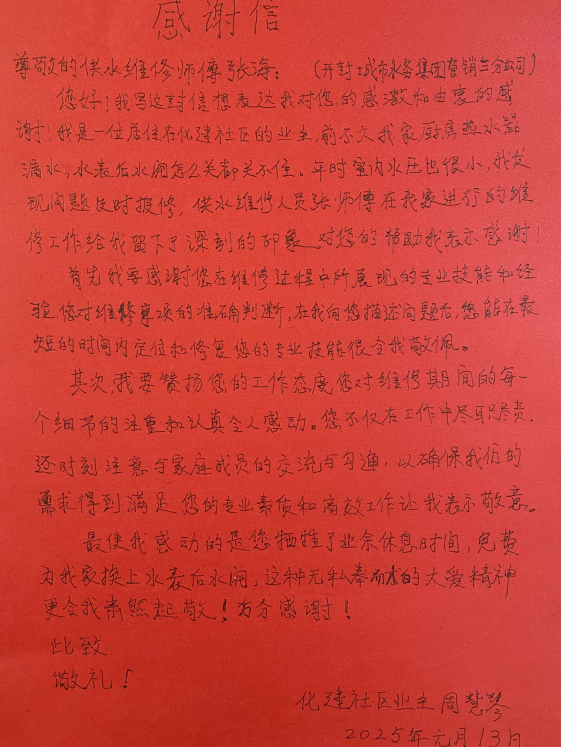 感谢信
尊敬的供水维修师傅张海：（开封城市水务集团营销三分公司）
您好！我写这封信想表达我对您的感激和由衷的感
谢！我是一位居住在化建社区的业主，前不久我家厨房热水器
漏水，水表后水阀怎么关都关不住。平时室内水压也很小，我发
现问题及时报修，供水维修人员张师傅在我家进行的维
修工作给我留下了深刻的印象，对您的帮助我表示感谢！
首先我要感谢您在维修过程中所展现的专业技能和经
验，您对维修事项的准确判断，在我向您描述问题后，您能在最
短的时间内定位和修复您的专业技能很令我敬佩。
其次，我要赞扬您的工作态度您对维修期间的每一
个细节的注重和认真令人感动。您不仅在工作中尽职尽责，
还时刻注意与家庭成员的交流与沟通，以确保我们的
需求得到满足您的专业素质和高效工作让我表示敬意。
最使我感动的是您牺牲了业余休息时间，免费
为我家换上水表后水阀，这种无私奉献的大爱精神
更令我肃然起敬！万分感谢！
此致
敬礼！
化建社区业主周慧琴
2025年元月13日